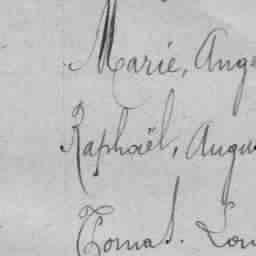 Marie, Ange
Raphaël, Augu
Tomas. Lou